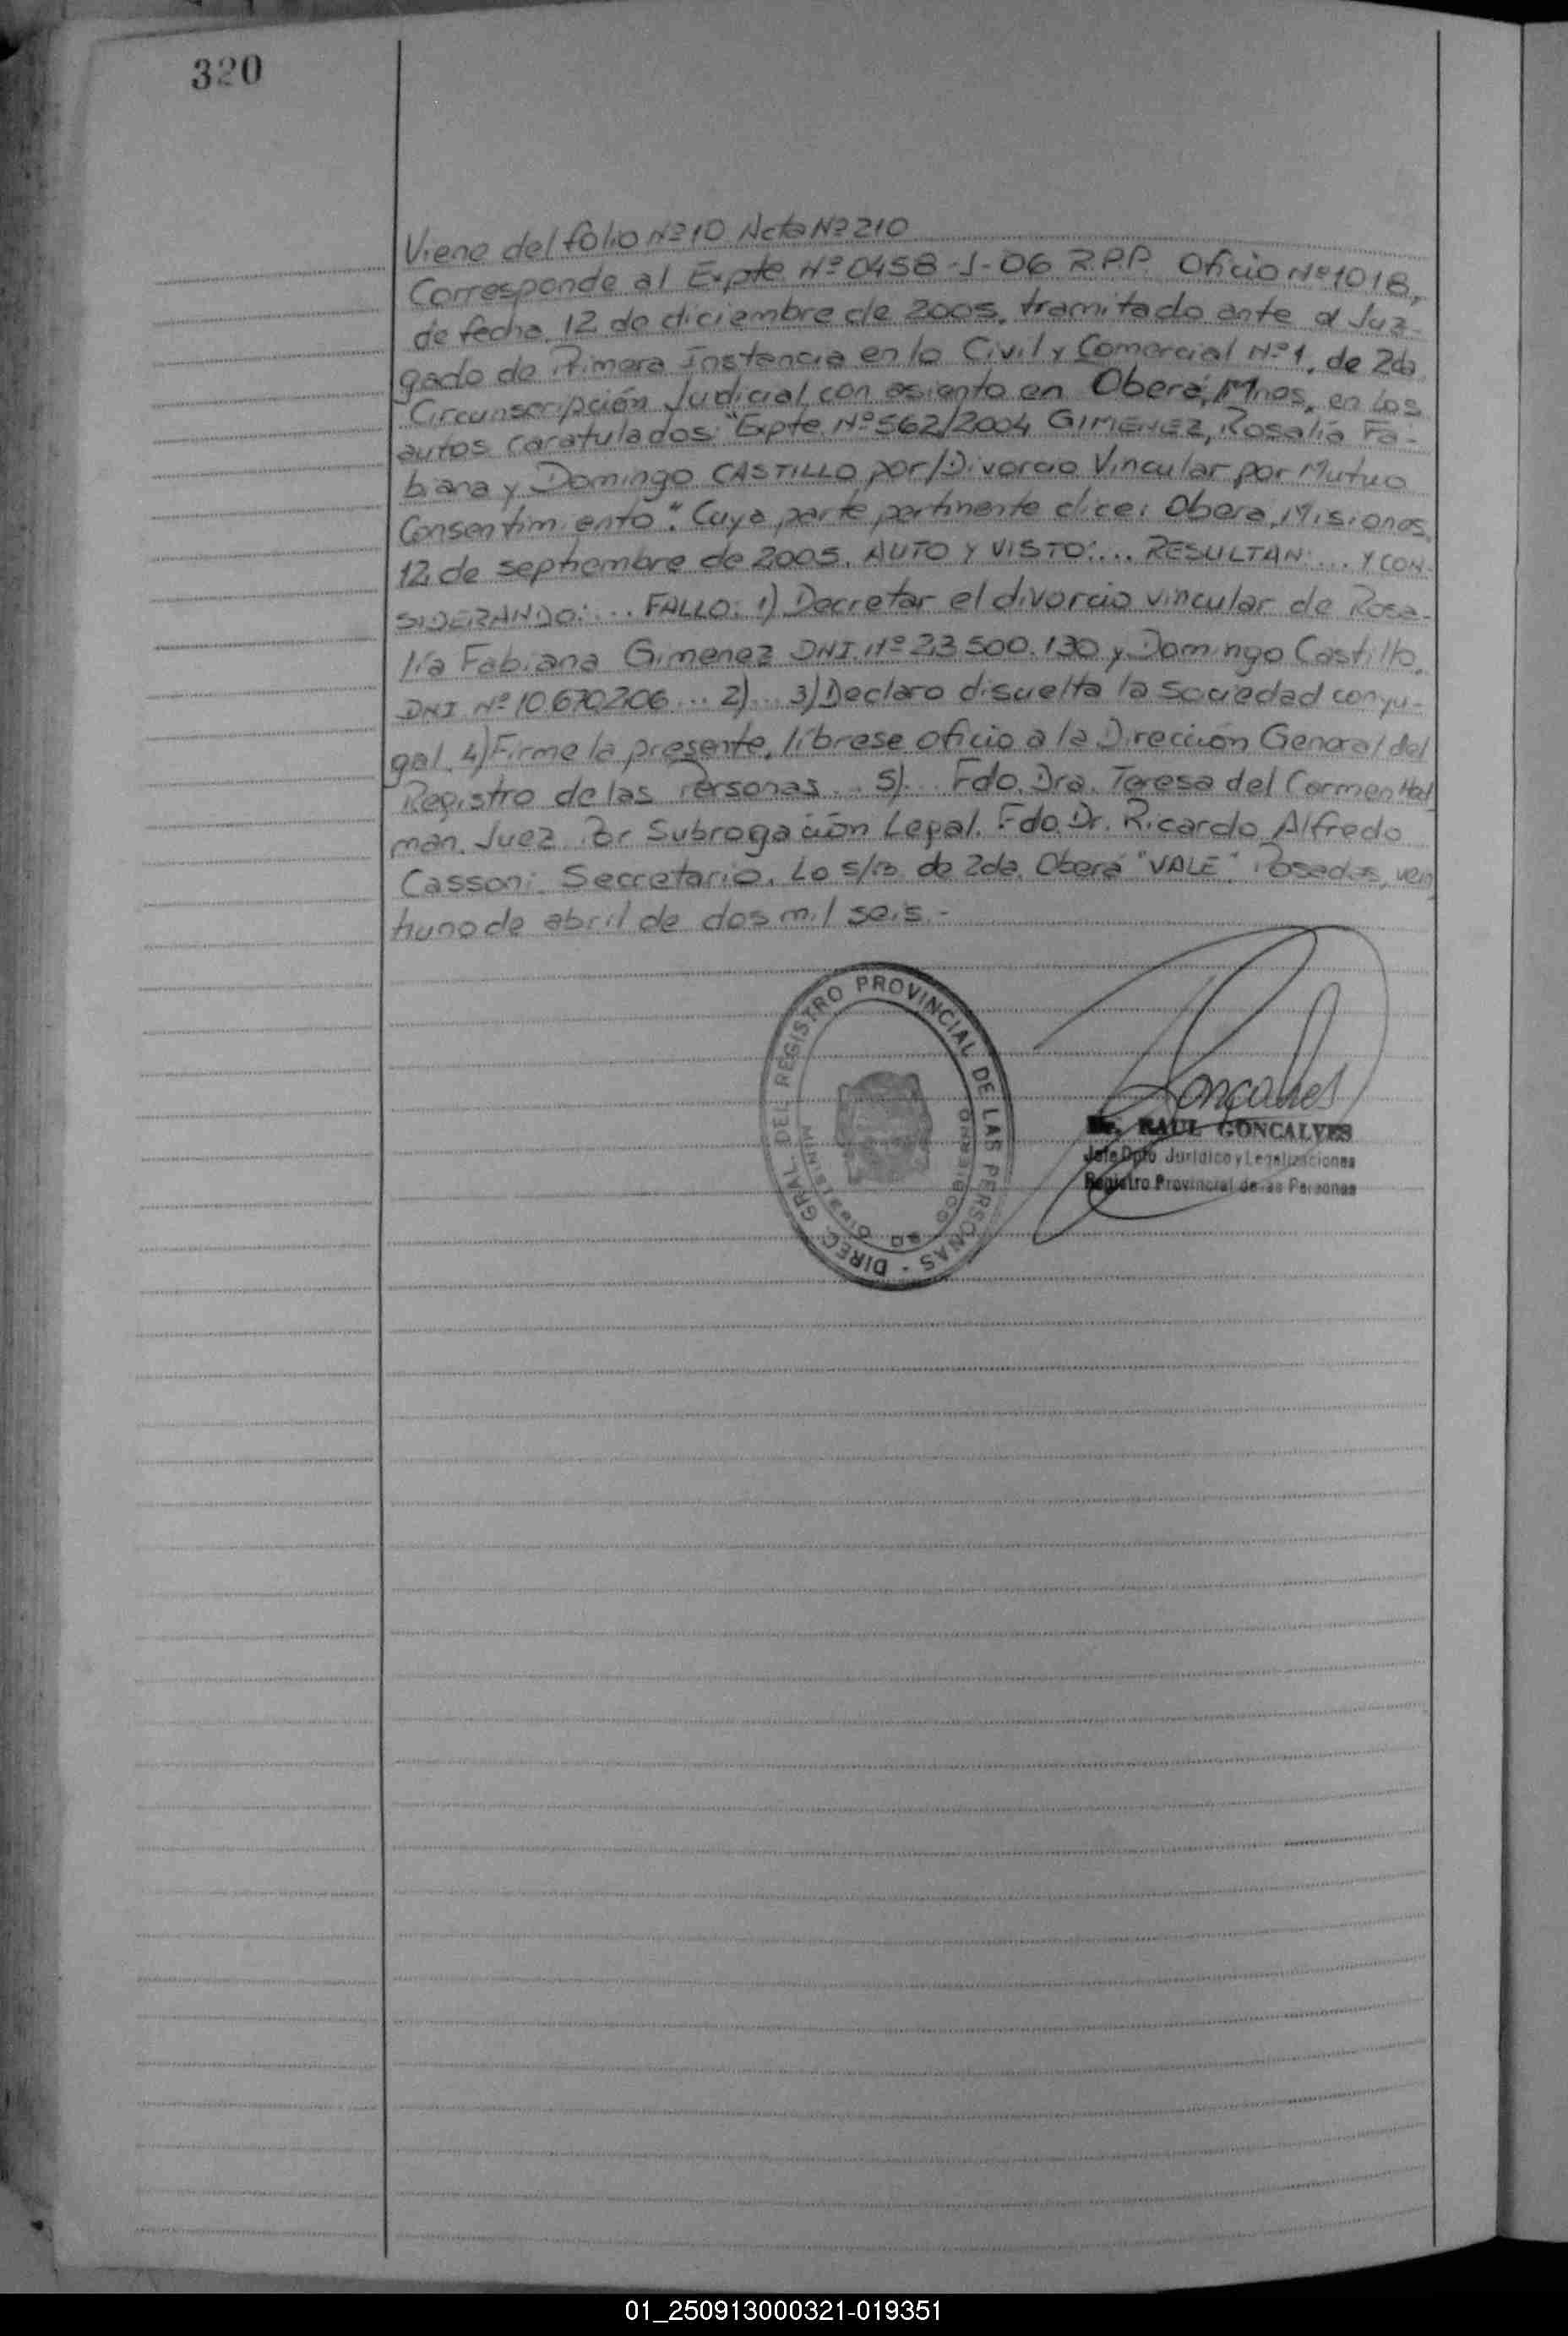 320
Viene del folio Nº 10 Acta Nº 210
Corresponde al Expte Nº 0458-J-06 R.P.P. Oficio Nº 1018,
de fecha 12 de diciembre de 2005, tramitado ante el Juz-
gado de Primera Instancia en lo Civil y Comercial Nº 1, de 2da
Circunscripción Judicial con asiento en Oberá, Mnes, en los
autos caratulados: "Expte. Nº 562/2004 GIMENEZ, Rosalía Fa-
biana y Domingo CASTILLO por/Divorcio Vincular por Mutuo
Consentimiento". Cuya parte pertinente dice: Oberá, Misiones,
12 de septiembre de 2005. AUTO Y VISTO:... RESULTAN:... Y CON-
SIDERANDO:... FALLO: 1) Decretar el divorcio vincular de Rosa-
lía Fabiana Gimenez DNI. Nº 23.500.130 y Domingo Castillo,
DNI Nº 10.670.206... 2)... 3) Declaro disuelta la sociedad conyu-
gal. 4) Firme la presente, líbrese oficio a la Dirección General del
Registro de las Personas... 5)... Fdo. Dra. Teresa del Carmen
man. Juez Por Subrogación Legal. Fdo. Dr. Ricardo Alfredo
Cassoni Secretario. Lo s/b de 2da. Oberá "VALE". Posadas, vein
tiuno de abril de dos mil seis.-
DIREC. GRAL. DEL REGISTRO PROVINCIAL DE LAS PERSONAS -
MINISTERIO DE GOBIERNO
Goncalves
Dr. RAUL GONCALVES
Jefe Dpto Jurídico y Legalizaciones
Registro Provincial de las Personas
01_250913000321-019351